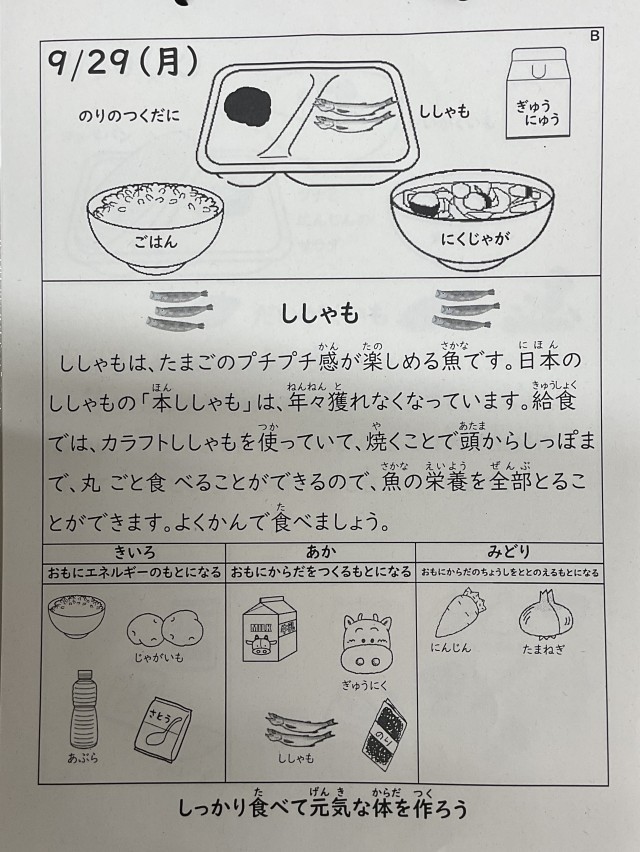 B
9/29(月)
のりのつくだに
ししゃも
ぎゅう
にゅう
ごはん
にくじゃが
ししゃも
ししゃもは、たまごのプチプチ感が楽しめる魚です。日本の
かん たの さかな にほん
ししゃもの「本ししゃも」は、年々獲れなくなっています。給食
ほん ねんねん と きゅうしょく
では、カラフトししゃもを使っていて、焼くことで頭からしっぽま
つか や あたま
で、丸ごと食べることができるので、魚の栄養を全部とるこ
さかな えいよう ぜんぶ
とができます。よくかんで食べましょう。
た
きいろ あか みどり
おもにエネルギーのもとになる おもにからだをつくるもとになる おもにからだのちょうしをととのえるもとになる
じゃがいも
あぶら
さとう
MILK
ぎゅうにく
ししゃも
のり
にんじん
たまねぎ
しっかり食べて元気な体を作ろう
た げんき からだ つく